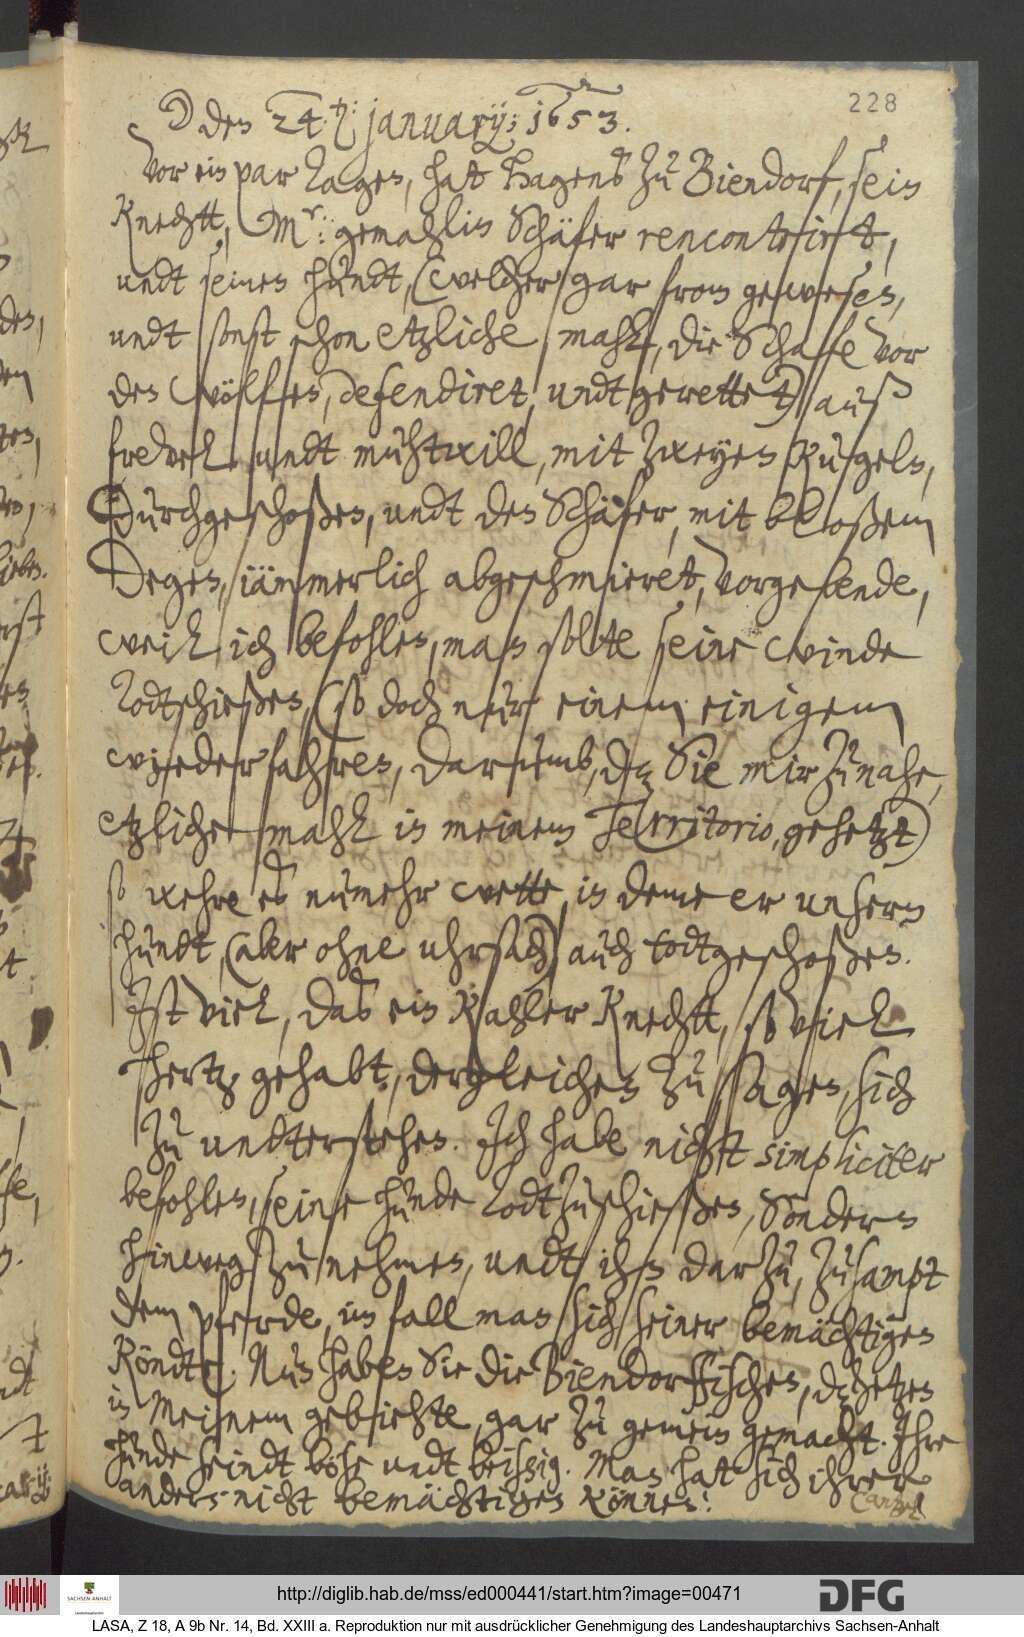 228
☽ den 24.ten: january; 1653.
Vor ein par Tagen, hat Hagens zu Biendorf, sein
Knechtt, Mr: gemahlin Schäfer rencontrirt,
undt seinen hundt, (welcher gar from gewesen,
undt sonst schon etzliche mahl, die Schaffe vor
den Wölffen, defendiret, undt gerettet) auß
frevel undt muhtwill, mit zweyen Kugeln,
durchgeschoßen, undt den Schäfer, mit bloßem
Degen, iämmerlich abgeschmieret, vorgebende,
weil ich befohlen, man solte seine winde
Todtschießen, (so doch nur einem einigem
wiederfahren, darumb, dz Sie mir zu nahe,
etzliche mahl in meinem Territorio, gehetzt)
so wehre es numehr wette, in deme er unsern
hundt, (aber ohne uhrsach) auch todtgeschoßen.
Ist viel, das ein Kahler Knechtt, so viel
hertz gehabt, dergleichen zu sagen, sich
zu undterstehen. Ich habe nicht simpliciter
befohlen, seine hunde Todtzuschießen, Sondern
hinweg zu nehmen, undt ihn darzu, zusampt
dem pferde, im fall man sich seiner bemächtigen
Köndte. Nun haben Sie die Biendorffischen, dz hetzen
in Meinem gebiehte, gar zu gemein gemacht. Ihre
hunde seindt böse undt beissig. Man hat sich ihrer
anders nicht bemächtigen können!
http://diglib.hab.de/mss/ed000441/start.htm?image=00471
SACHSEN-ANHALT
Landeshauptarchiv
DFG
LASA, Z 18, A 9b Nr. 14, Bd. XXIII a. Reproduktion nur mit ausdrücklicher Genehmigung des Landeshauptarchivs Sachsen-Anhalt